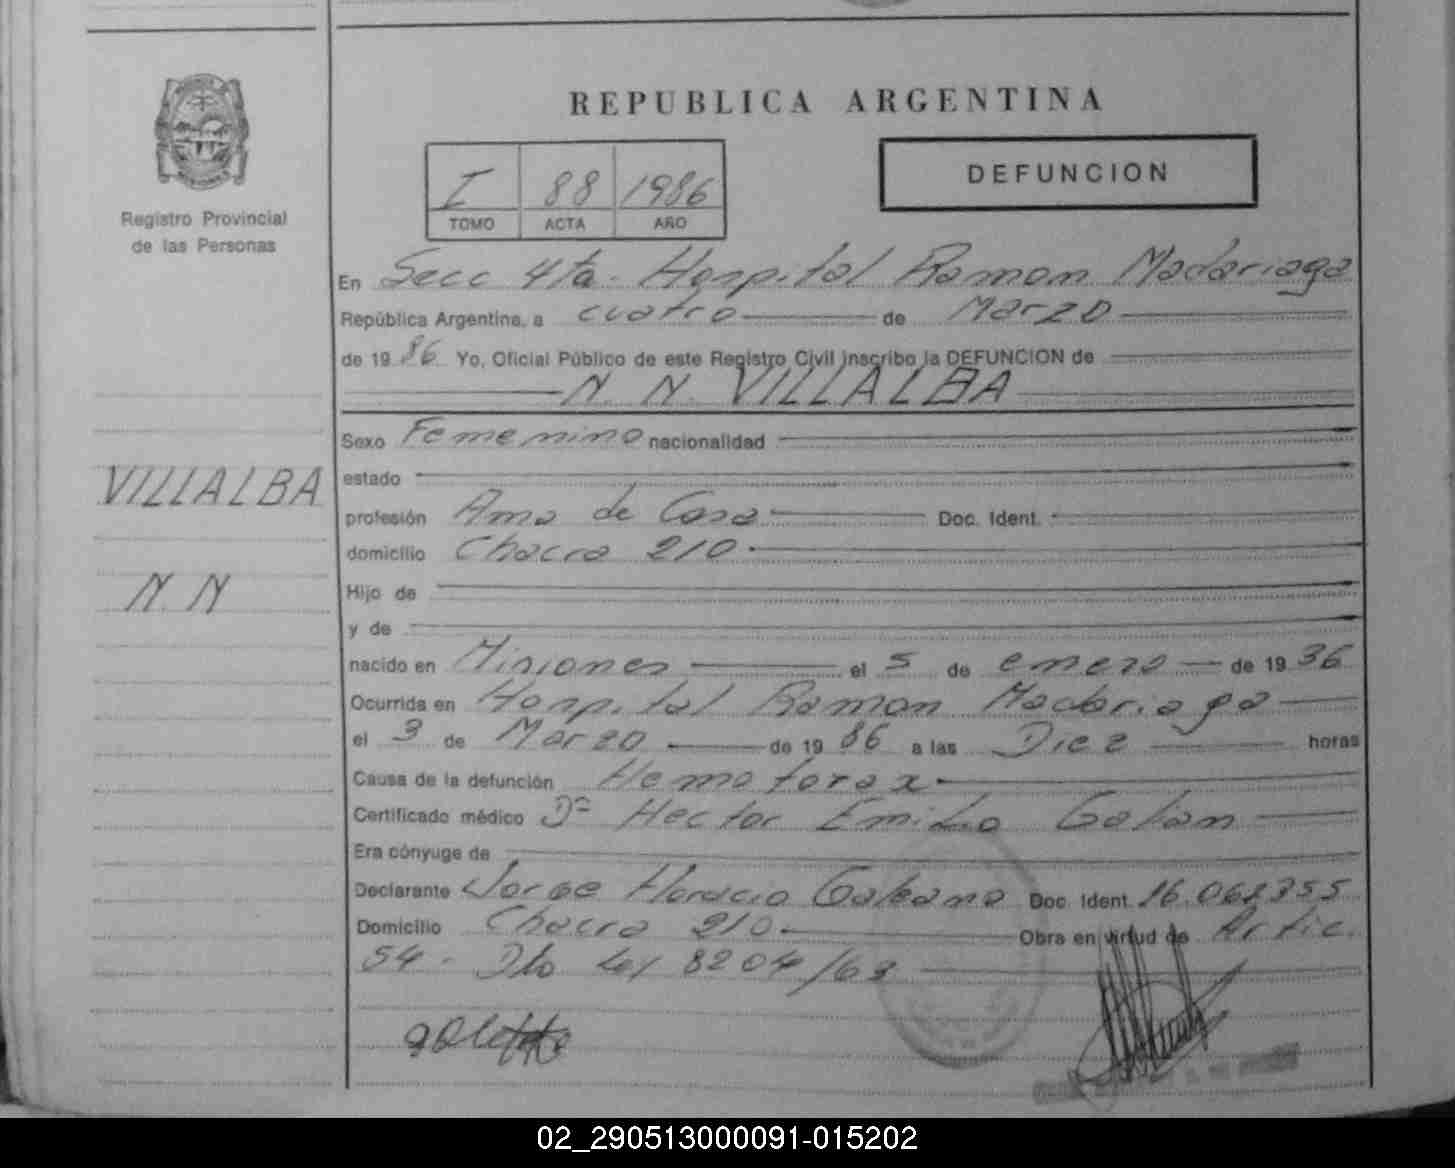 REPUBLICA ARGENTINA
I 88 1986
TOMO ACTA AÑO
DEFUNCION
Registro Provincial
de las Personas
En Secc 4ta. Hospital Ramon Madariaga
República Argentina, a cuatro de Marzo
de 1986 Yo, Oficial Público de este Registro Civil inscribo la DEFUNCION de
N. N. VILLALBA
Sexo Femenino nacionalidad
estado
VILLALBA
profesión Ama de Casa Doc. Ident.
domicilio Chacra 210
N. N
Hijo de
y de
nacido en Misiones el 5 de enero de 1936
Ocurrida en Hospital Ramon Madariaga
el 3 de Marzo de 1986 a las Diez horas
Causa de la defunción Hemotorax
Certificado médico Dr Hector Emilio Galian
Era cónyuge de
Declarante Jorge Horacio Galeano Doc. Ident. 16.062.355
Domicilio Chacra 210 Obra en virtud de Artic.
54. Dto Ley 8204/63
02_290513000091-015202